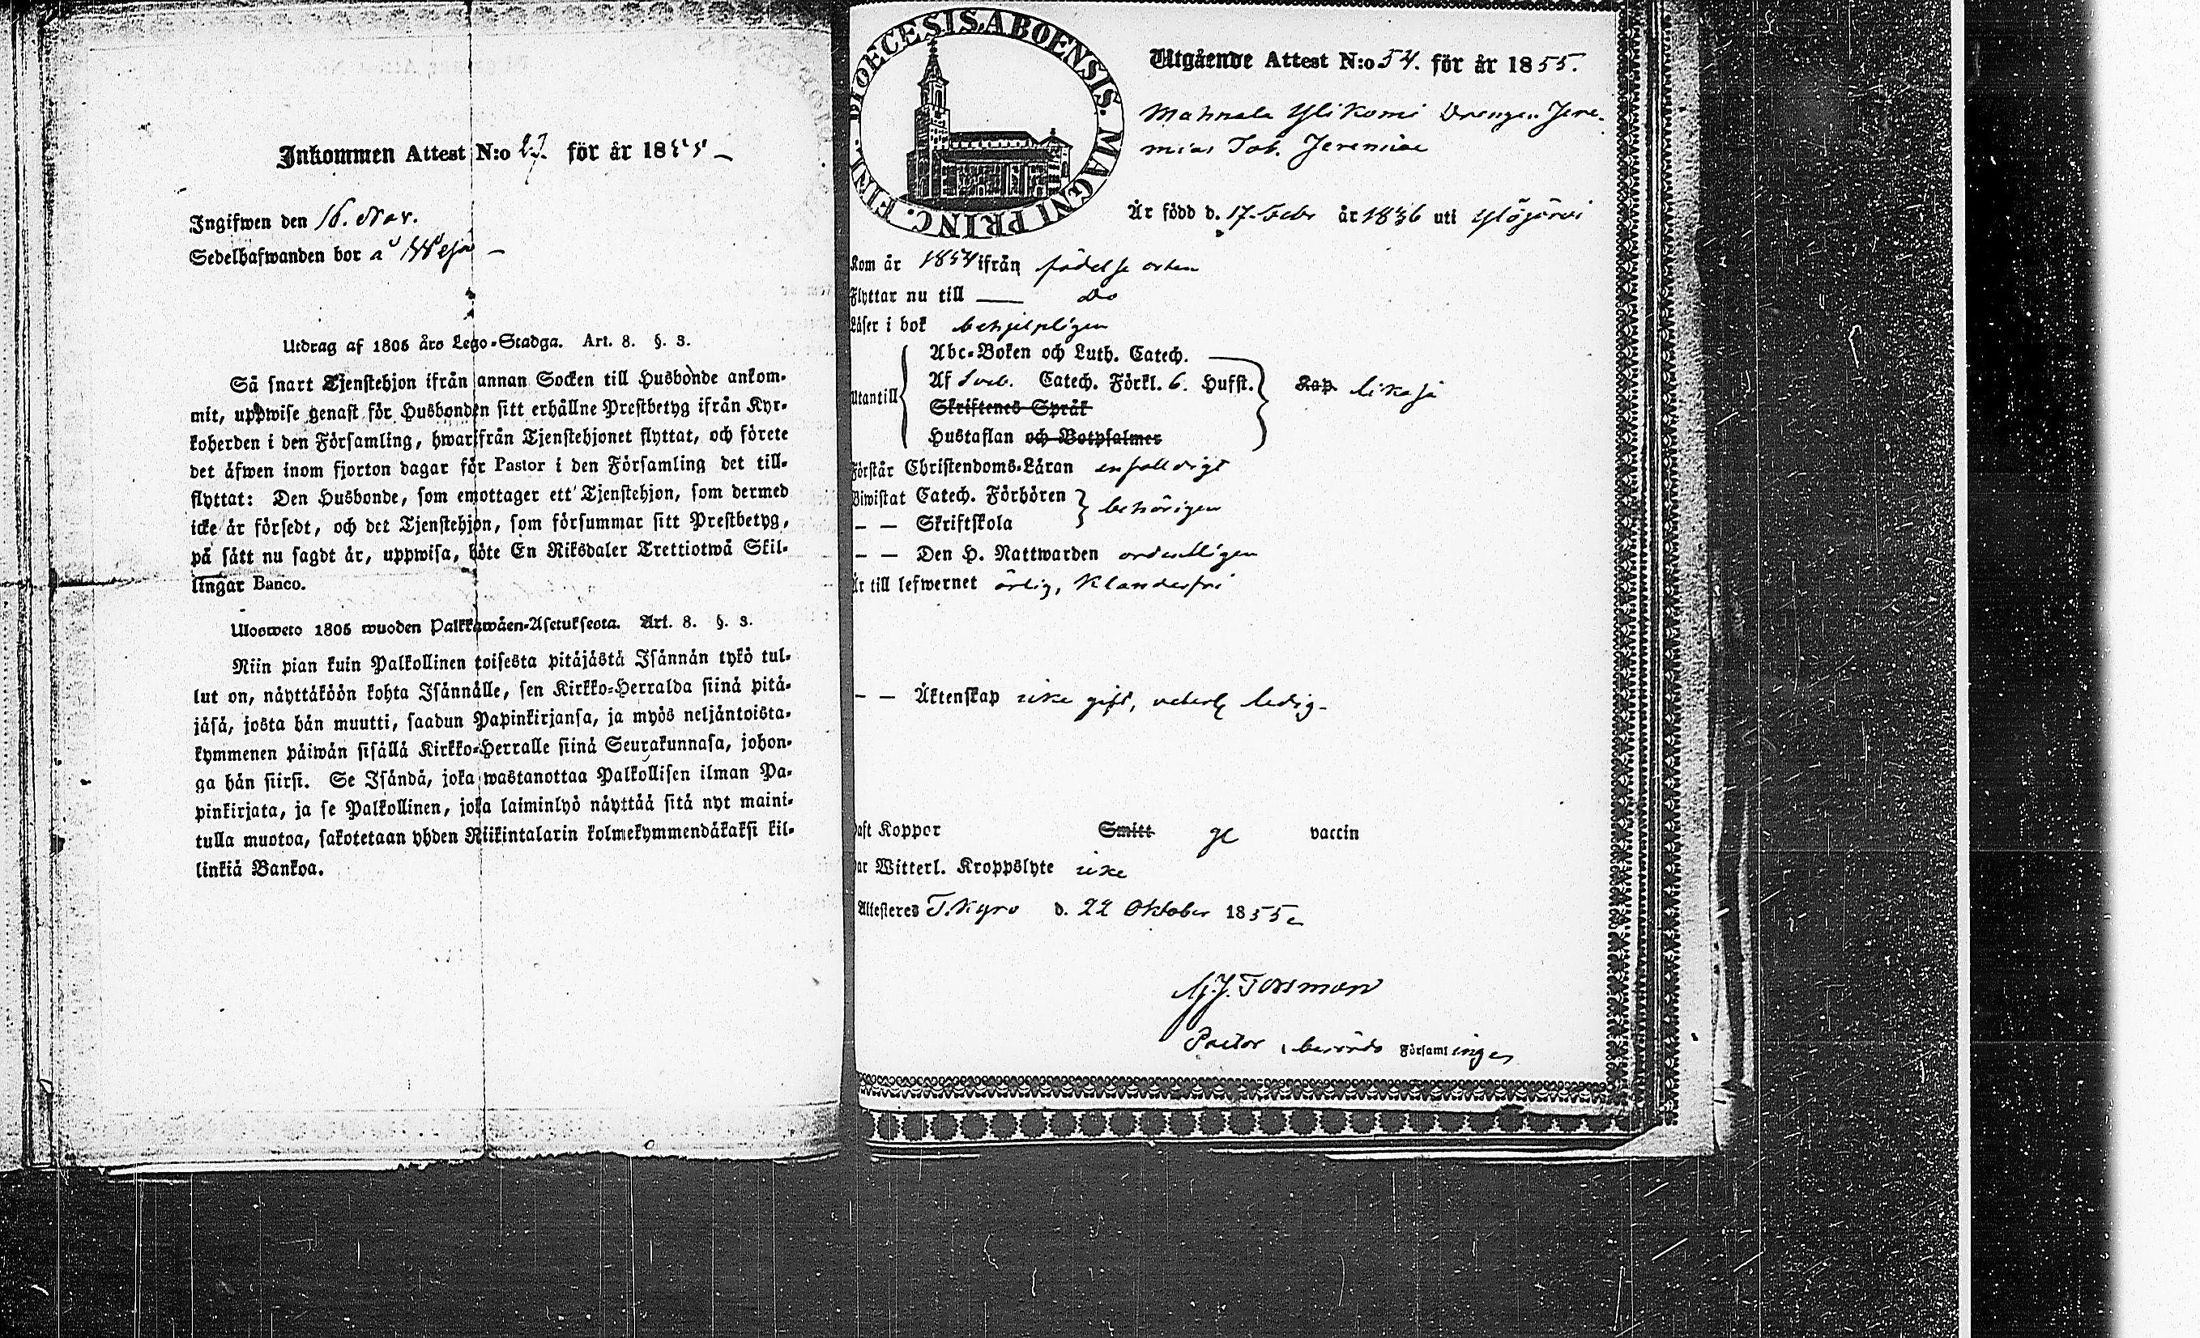 Inkommen Attest N:o 27. för år 1855
Ingifwen den 16. Nov.
Sedelhafwanden bor å
Utdrag af 1805 års Lego-Stadga. Art. 8. §. 3.
Så snart Tjenstehjon ifrån annan Socken till Husbonde ankom-
mit, uppwise genast för Husbonden sitt erhållne Prestbetyg ifrån Kyr-
koherden i den Församling, hwarifrån Tjenstehjonet flyttat, och förete
det äfwen inom fjorton dagar för Pastor i den Församling det till-
flyttat: Den Husbonde, som emottager ett Tjenstehjon, som dermed
icke är försedt, och det Tjenstehjon, som försummar sitt Prestbetyg,
på sätt nu sagdt är, uppwisa, böte En Riksdaler Trettiotwå Skil-
lingar Banco.
Uloswето 1805 wuoden Palkkawäen-Asetuksesta. Art. 8. §. 3.
Niin pian kuin Palkollinen toisesta pitäjästä Isännän tykö tul-
lut on, näyttäköön kohta Isännälle, sen Kirkko-Herralda siinä pitä-
jäsä, josta hän muutti, saadun Papinkirjansa, ja myös neljäntoista-
kymmenen päiwän sisällä Kirkko-Herralle siinä Seurakunnasa, johon-
ga hän siirst. Se Isändä, joka wastanottaa Palkollisen ilman Pa-
pinkirjata, ja se Palkollinen, joka laiminlyö näyttää sitä nyt maini-
tulla muotoa, sakotetaan yhden Riikintalarin kolmekymmendäkaksi kil-
linkiä Bankoa.
DIOECESIS ABOENSIS. MAGNI PRINC. FINL.
Utgående Attest N:o 54. för år 1855.
Mahnala Ylikomi Drengen Jere-
mias Tob. Jeremiae
Är född d. 17. Febr år 1836 uti Ylöjärvi
Kom år 1854 ifrån födelse orten
Flyttar nu till —— Do
Läser i bok behjelpligen
Utantill
Abc-Boken och Luth. Catech.
Af Sveb. Catech. Förkl. 6. Hufst. Kap. likaså
Skriftenes Språk
Hustaflan och Botpsalmer
Förstår Christendoms-Läran enfaldigt
Biwistat Catech. Förhören behörigen
— — Skriftskola
— — Den H. Nattwarden ordentligen
Är till lefwernet ärlig, klanderfri
— — Äktenskap icke gift, ledig.
Haft Koppor Smitt gc vaccin
Har Witterl. Kroppslyte icke
Attesteres T. Kyro d. 22 Oktober 1855
Pastor i berörde Församlingen